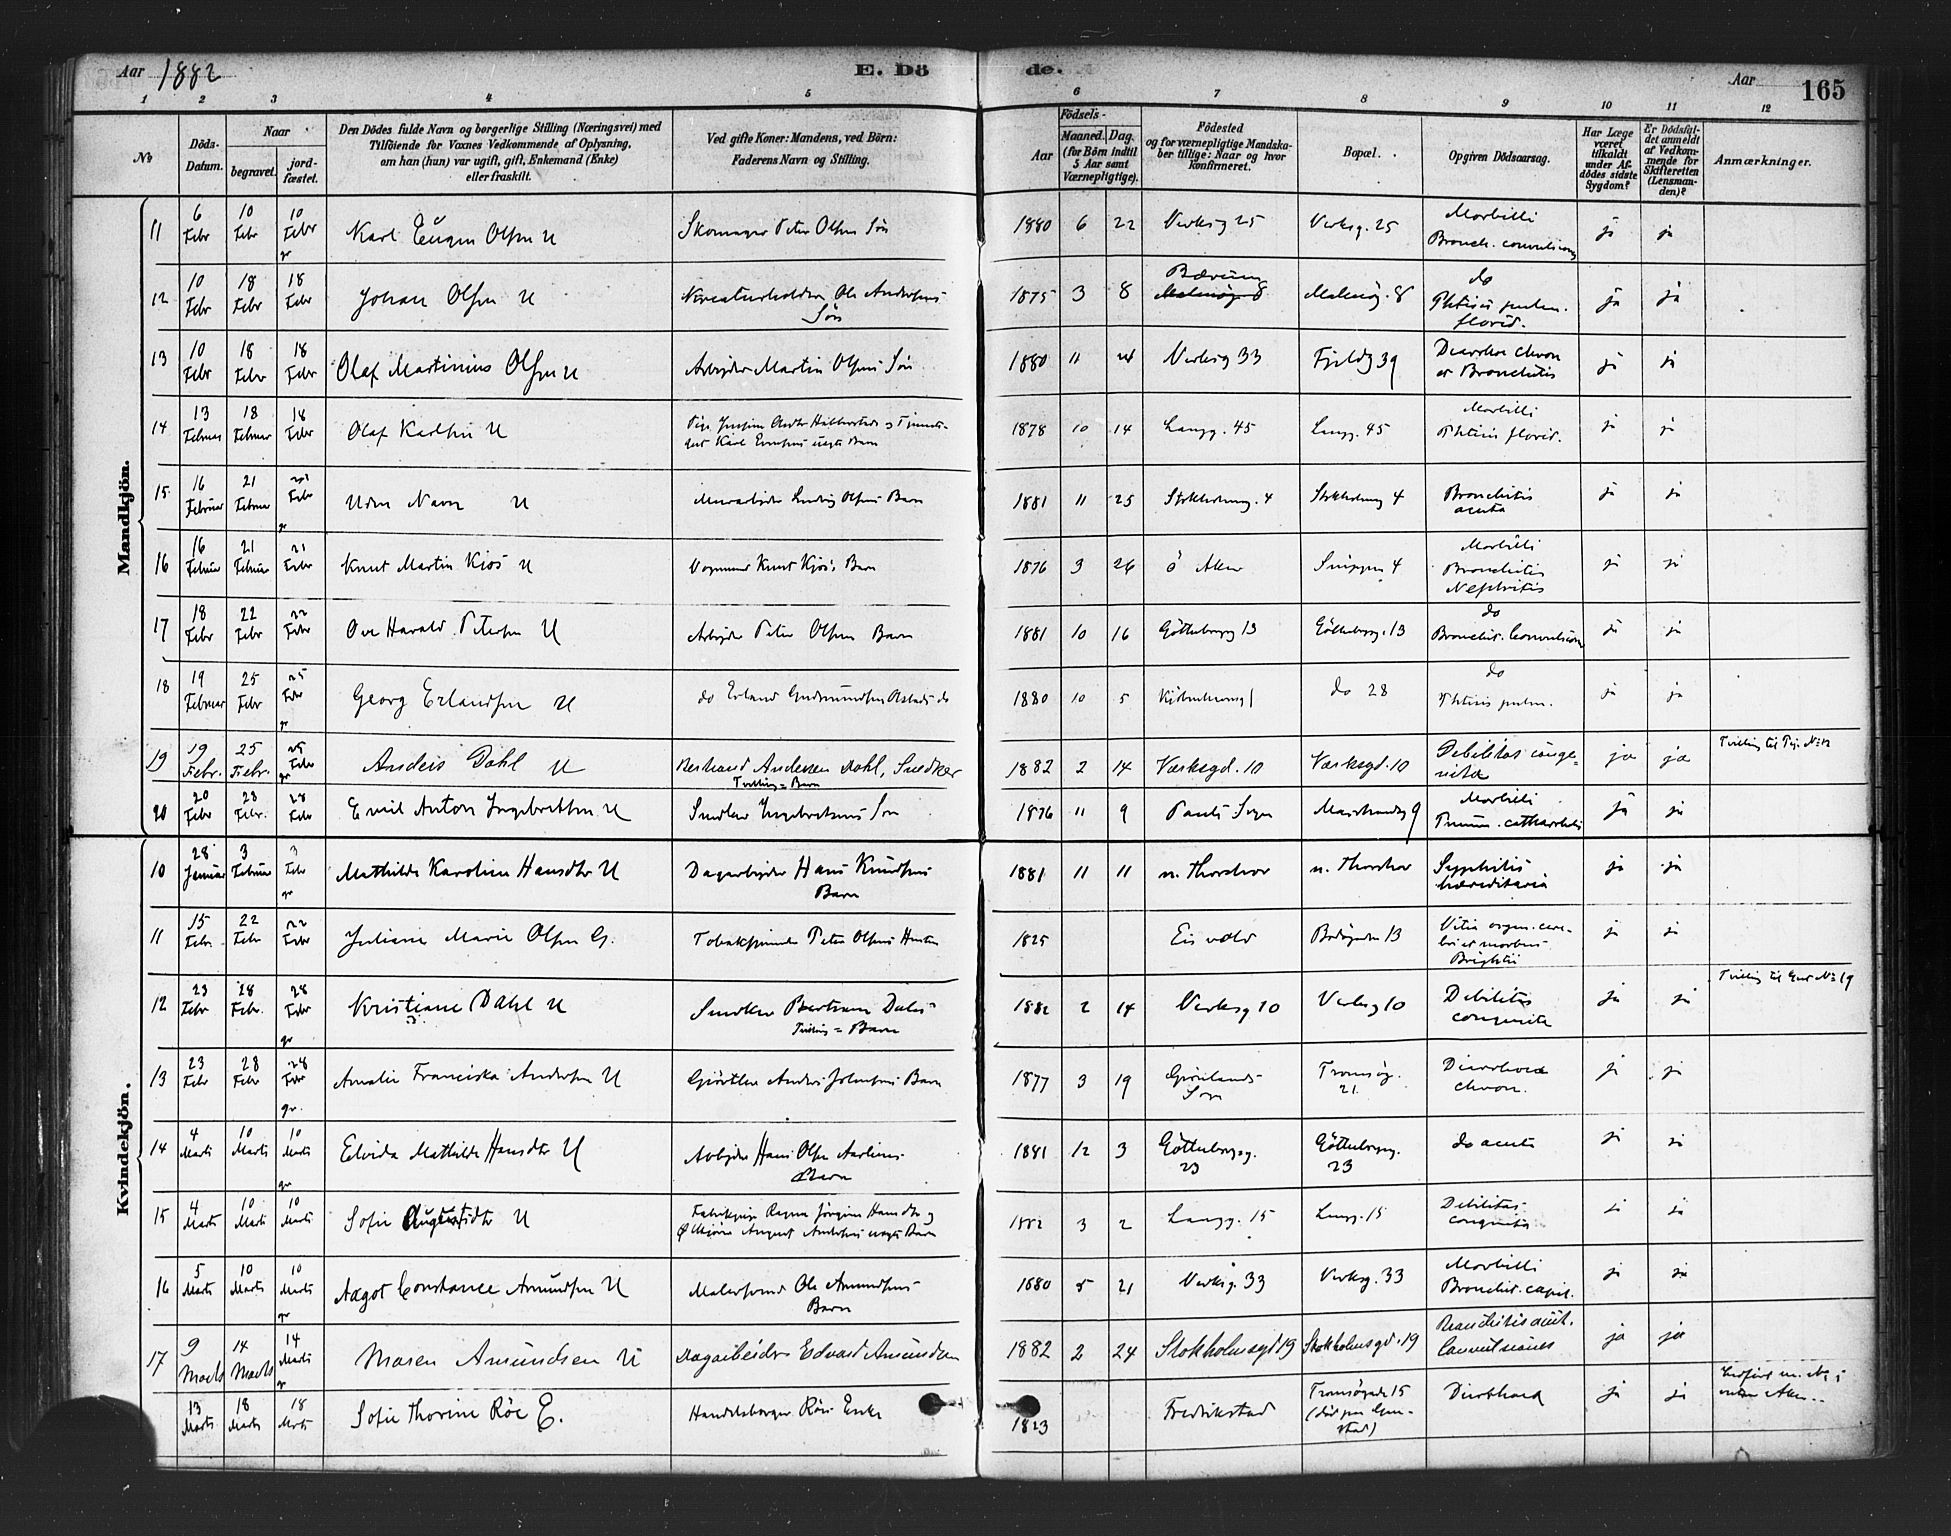 Aar 1882
E. Dö
de.
Aar
165
1 2 3 4 5 6 7 8 9 10 11 12
No
Döds-Datum.
Naar
begravet.
jord-fæstet.
Den Dödes fulde Navn og borgerlige Stilling (Næringsvei) med
Tilföiende for Voxnes Vedkommende af Oplysning,
om han (hun) var ugift, gift, Enkemand (Enke)
eller fraskilt.
Ved gifte Koner: Mandens, ved Börn:
Faderens Navn og Stilling.
Födsels-
Aar
Maaned. Dag.
(for Börn indtil
5 Aar samt
Værnepligtige).
Födested
og for værnepligtige Mandska-
ber tillige: Naar og hvor
konfirmeret.
Bopæl.
Opgiven Dödsaarsag.
Har Læge
været
tilkaldt
under Af-
dödes sidste
Sygdom?
Er Dödsfal-
det anmeldt
af Vedkom-
mende for
Skifteretten
(Lensman-
den)?
Anmærkninger.
Mandkjön.
11 6 Febr 10 Febr 10 Febr gr Karl Eugen Olsen U Skomager Peter Olsens Sön 1880 6 22 Verksg 25 Verksg. 25 Morbilli Bronch. convulsions ja ja
12 10 Febr 18 Febr 18 Febr Johan Olsen U Kreaturholder Ole Andersens Sön 1875 3 8 Bærum Malmög 8 Malmög. 8 do Phtisis pulm. florid. ja ja
13 10 Febr 18 Febr 18 Febr Olaf Martinius Olsen U Arbejder Martin Olsens Sön 1880 11 24 Verksg 33 Fjeldg 39 Diarrhoe chron er Bronchitis ja ja
14 13 Februar 18 Februar 18 Febr Olaf Karlsen U Karl uægte Barn 1878 10 14 Langg. 45 Langg. 45 Morbilli Phtisis florid. ja ja
15 16 Februar 21 Februar 21 Febr gr Uden Navn U Murarbejder Ludvig Olsens Barn 1881 11 25 Stokholmsg. 4 Stokholmsg 4 Bronchitis acuta ja ja
16 16 Februar 21 Februar 21 Febr Knut Martin Kjös U Vognmand Knut Kjös's Barn 1876 3 26 ö Aker Snippen 4 Morbilli Bronchitis Nephritis ja ja
17 18 Febr 22 Febr 22 Febr Ove Harald Petersen U Arbejder Peter Olsens Barn 1881 10 16 Götteborgg 13 Götteborgg. 13 do Bronchit. Convulsion ja ja
18 19 Februar 25 Febr 25 Febr gr Georg Erlandsen U do Erland Gudmundsen do 1880 10 5 do 28 do Phtisis pulm. ja ja
19 19 Febr. 25 Febr. 25 Febr gr Anders Dahl U Bertrand Andersen Dahl, Snedker Tvilling-Barn 1882 2 14 Værksgd. 10 Værksgd. 10 Debilitas conge-nita ja ja Tvilling til Pige No 12
20 20 Febr 28 Febr. 28 Febr Emil Anton Ingebretsen U Snedker Ingebretsens Sön 1876 11 9 Pauls Sogn Marstrandg 9 Morbilli Pneum. catharrhalis ja ja
Kvindekjön.
10 28 Januar 3 Februar 3 Febr gr Mathilde Karoline Hansdtr U Dagarbejder Hans Knudsens Barn 1881 11 11 n. Thorshov n. Thorshov Syphilis hæreditaria ja ja
11 15 Febr 22 Febr 22 Febr Juliane Marie Olsen G. Tobakspinder Peter Olsens Hustru 1825 Eidsvold Bodögaden 13 Vitia organ. cere-bri et morbus Brightii ja ja
12 23 Febr 28 Febr. 28 Febr gr Kristiane Dahl U Snedker Bertram Dahls Tvilling-Barn 1882 2 14 Verksg 10 Verksg 10 Debilitas congenita ja ja Tvilling til Gut No 19
13 23 Febr 28 Febr 28 Febr gr. Amalie Franciska Andersen U Gjörtler Anders Johnsens Barn 1877 3 19 Grönlands Sogn Tromsög. 21 Diarrhoea chron. ja ja
14 4 Marts 10 Marts 10 Marts gr Elvida Mathilde Hansdtr U Arbejder Hans Olsen Barn 1881 12 3 Götteborgsg. 23 Götteborgsg. 23 do acuta ja ja
15 4 Marts 10 Marts 10 Marts Sofie Augustsdtr U Fabrikpige Ragna Jörgine Hansdtr og August Andersens uægte Barn 1882 3 2 Langg. 15 Langg. 15 Debilitas congenita ja ja
16 5 Marts 10 Marts 10 Marts gr Aagot Constance Amundsen U Malersvend Ole Amundsens Barn 1880 5 21 Verksg. 33 Verksg. 33 Morbilli Bronchit. capil. ja ja
17 9 Marts 14 Marts 14 Marts gr Maren Amundsen U Dagarbeider Edvard Amundsen 1882 2 24 Stokholmsgd 19 Stokholmsgd. 19 Bronchitis acut. Convulsiones ja ja
13 Marts 18 Marts 18 Marts Sofie Thorine Röe E. Handelsborger Röes Enke 1823 Fredrikstad Tromsögade 15 Diarrhoea ja ja